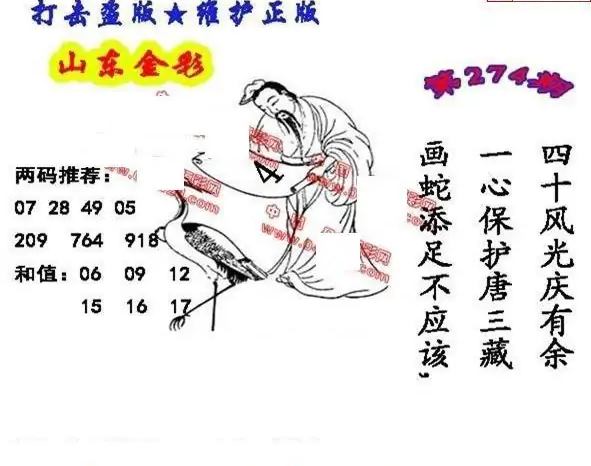 打击盗版★维护正版
山东金彩
第274期
两码推荐：
07 28 49 05
209 764 918
和值：06 09 12
15 16 17
4
四十风光庆有余
一心保护唐三藏
画蛇添足不应该"